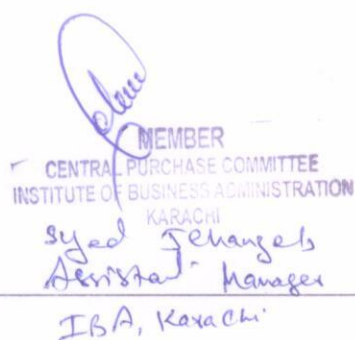 MEMBER
CENTRAL PURCHASE COMMITTEE
INSTITUTE OF BUSINESS ADMINISTRATION
KARACHI
Syed Jehangeb
Assistant Manager
IBA, Karachi